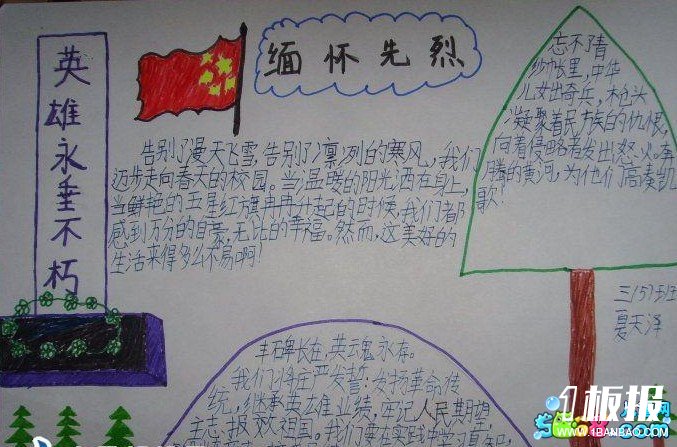 英雄永垂不朽
缅怀先烈
告别了漫天飞雪,告别了凛冽的寒风,我们
迈步走向春天的校园。当温暖的阳光洒在身上,
当鲜艳的五星红旗冉冉升起的时候,我们都
感到万分的自豪,无比的幸福。然而,这美好的
生活来得多么不易啊!
忘不了青
纱帐里,中华
儿女出奇兵,枪头
凝聚着民族的仇恨,
向着侵略者发出怒火。奔
腾的黄河,为他们高奏凯
歌!
三(5)班
夏天泽
丰碑长在,英魂永存。
我们将庄严发誓:发扬革命传
统,继承英雄业绩,牢记人民期望
报效祖国
1板报
WWW.1BANBAO.COM